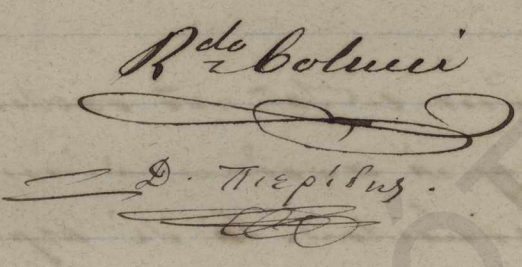 R.do Colucci
Δ. Πιερίδης.